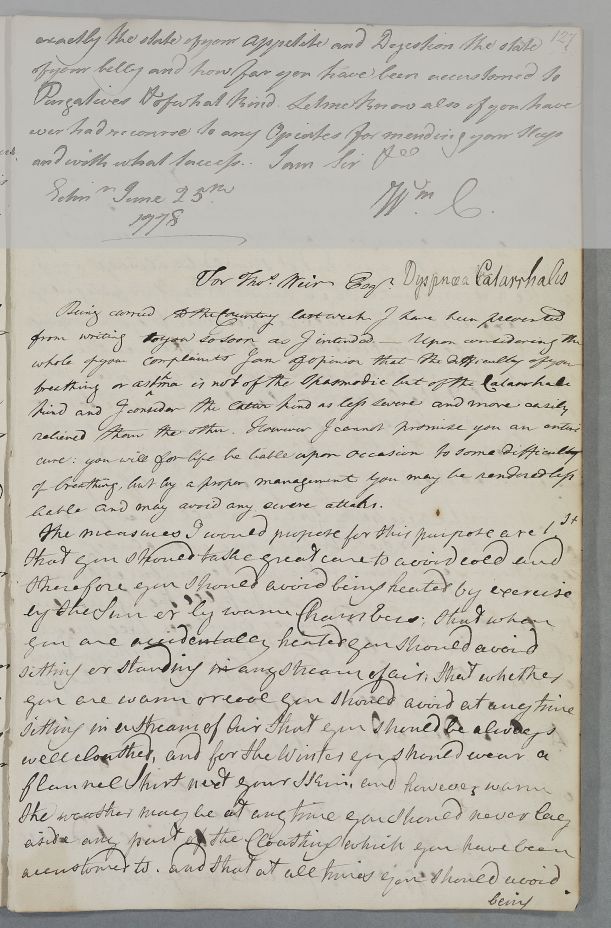 127
exactly the state of your appetite and Digestion the state
of your belly and how far you have been accustomed to
Purgatives & of what kind. Let me know also if you have
ever had recourse to any Opiates for mending your Sleep
and with what success. I am Sir &c
Edinr June 25th
1778
Wm C.
For Thos Weir Esqr Dyspnœa Catarrhalis
Being carried to the Country last week I have been prevented
from writing to you so soon as I intended — Upon considering the
whole of your Complaints I am of opinion that the difficulty of your
breathing or astma is not of the Spasmodic but of the Catarrhale
kind and I consider the latter kind as less severe and more easily
relieved than the other. However I cannot promise you an entire
cure: you will for life be liable upon occasion to some difficulty
of breathing, but by a proper management you may be rendered less
liable and may avoid any severe attaks.
The measures I would propose for this purpose are 1st
that you should take great care to avoid cold and
therefore you should avoid being heated by exercise
by the Sun or by warm Chambers; that when
you are accidentally heated you should avoid
sitting or standing in any stream of air; that whether
you are warm or cool you should avoid at any time
sitting in a stream of air that you should be always
well cloathed, and for the Winter you should wear a
flannel Shirt next your Skin, and however warm
the weather may be at any time you should never lay
aside any part of the Cloathing which you have been
accustomed to. and that at all times you should avoid
being